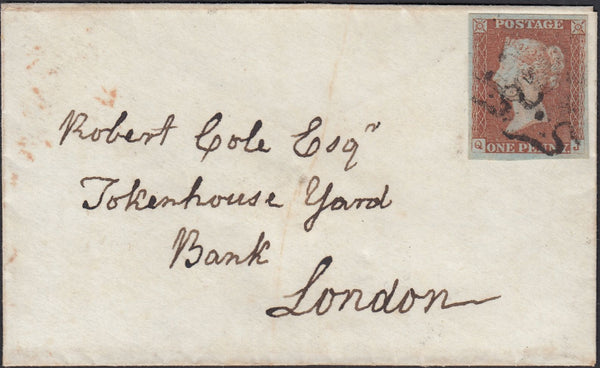 POSTAGE
Q ONE PENNY J
Robert Cole Esqr
Tokenhouse Yard
Bank
London